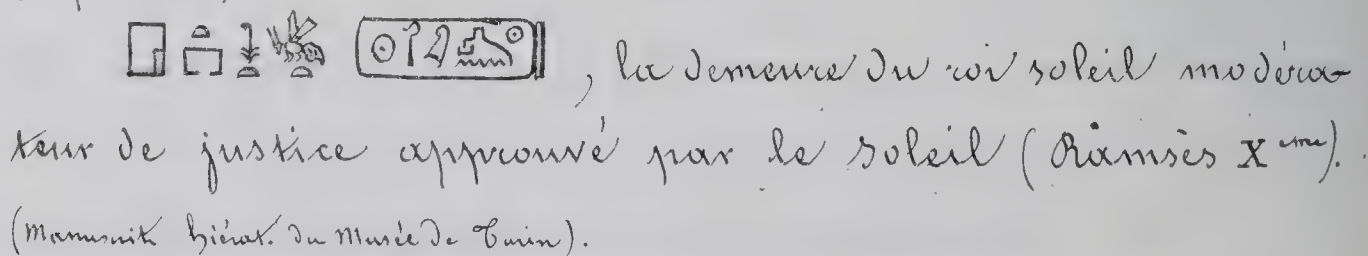 , la demeure du roi soleil modéra-
teur de justice approuvé par le soleil (Ramsès X ème).
(Manuscrit hiérat. du Musée de Turin).